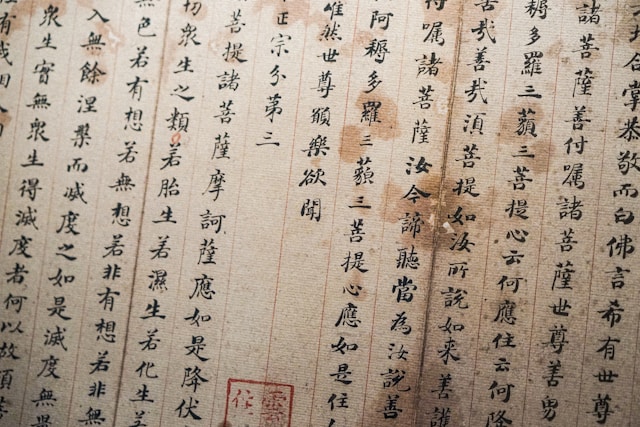 合掌恭敬而白佛言希有世尊
諸菩薩善付囑諸菩薩世尊善男
耨多羅三藐三菩提心云何應住云何降
哉善哉須菩提如汝所說如來善護
付囑諸菩薩汝今諦聽當為汝說善
阿耨多羅三藐三菩提心應如是住
唯然世尊願樂欲聞
正宗分第三
菩提諸菩薩摩訶薩應如是降伏
切衆生之類若胎生若濕生若化生若
色若有想若無想若非有想若非無
入無餘涅槃而滅度之如是滅度無量
衆生實無衆生得滅度者何以故須菩
有我相人